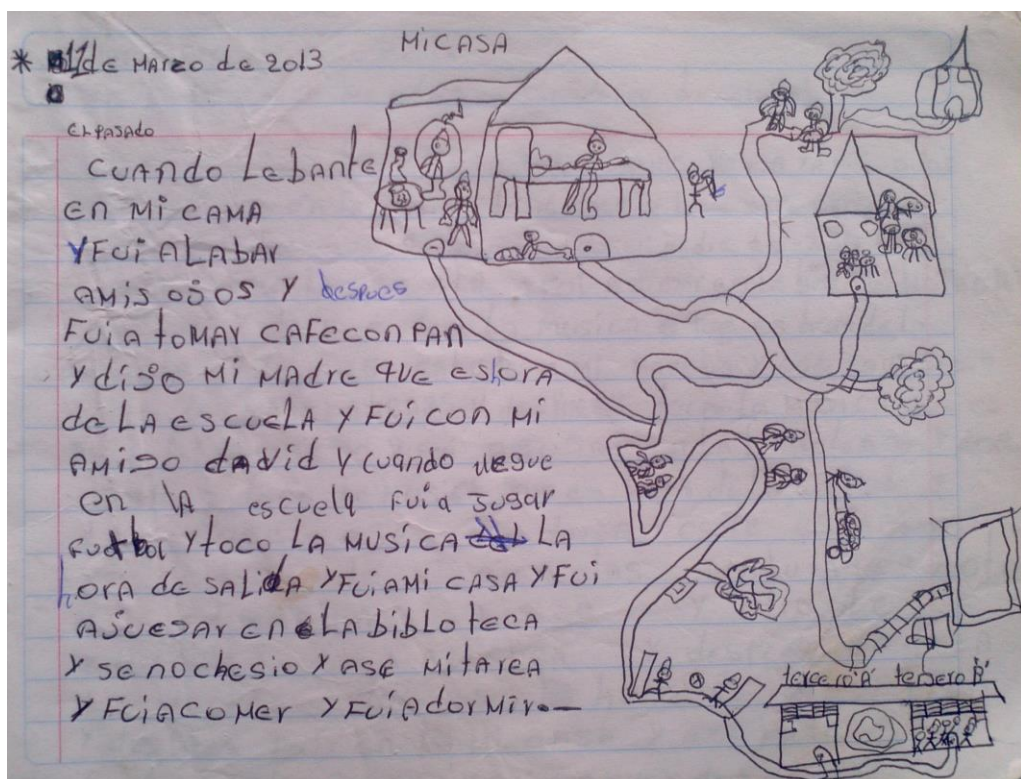 MI CASA
* 11 de MARZO de 2013
EL PASADO
CUANDO LEBANTE
EN MI CAMA
Y FUI A LABAR
A MIS OJOS Y despues
FUI A tOMAR CAFE CON PAN
Y dijo MI MADRE QUE es hora
de LA escueLA Y FUI CON MI
AMIGO dAVid Y cuando llegue
en lA escuela fui a JUGAR
futbol Y toco LA MUSICA LA
hORA de SALIdA Y FUI A MI CASA Y FUI
A JUEGAR EN LA bibLoteca
Y SE NOCHESIO Y ASE MI tAREA
Y FUI A COMER Y FUI A dorMir.—
tercero 'A' tersero B'